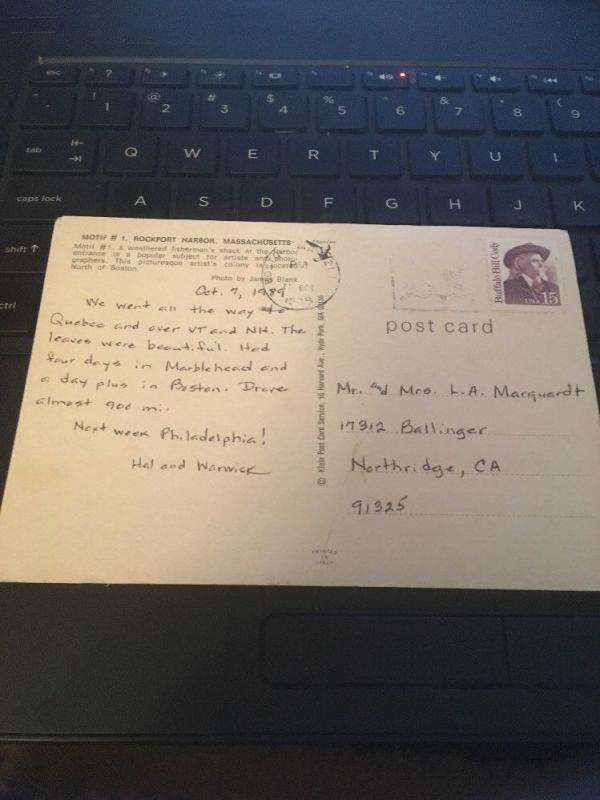 esc ?
! 1 @ 2 # 3 $ 4 % 5 ^ 6 & 7 * 8 ( 9
tab Q W E R T Y U I
caps lock A S D F G H J K
shift
ctrl
MOTIF # 1, ROCKPORT HARBOR, MASSACHUSETTS
Motif #1, a weathered fisherman's shack at the harbor
entrance is a popular subject for artists and photo-
graphers. This picturesque artist's colony is located
North of Boston.
Photo by James Blank
Oct. 7, 1989
We went all the way to
Quebec and over VT and NH. The
leaves were beautiful. Had
four days in Marblehead and
a day plus in Boston. Drove
almost 900 mi..
Next week Philadelphia!
Hal and Warwick
© Klein Post Card Service, Harvard Ave., Hyde Park, MA
PRINTED
IN
ITALY
Buffalo Bill Cody
USA 15
post card
Mr. and Mrs. L.A. Marquardt
17312 Ballinger
Northridge, CA
91325